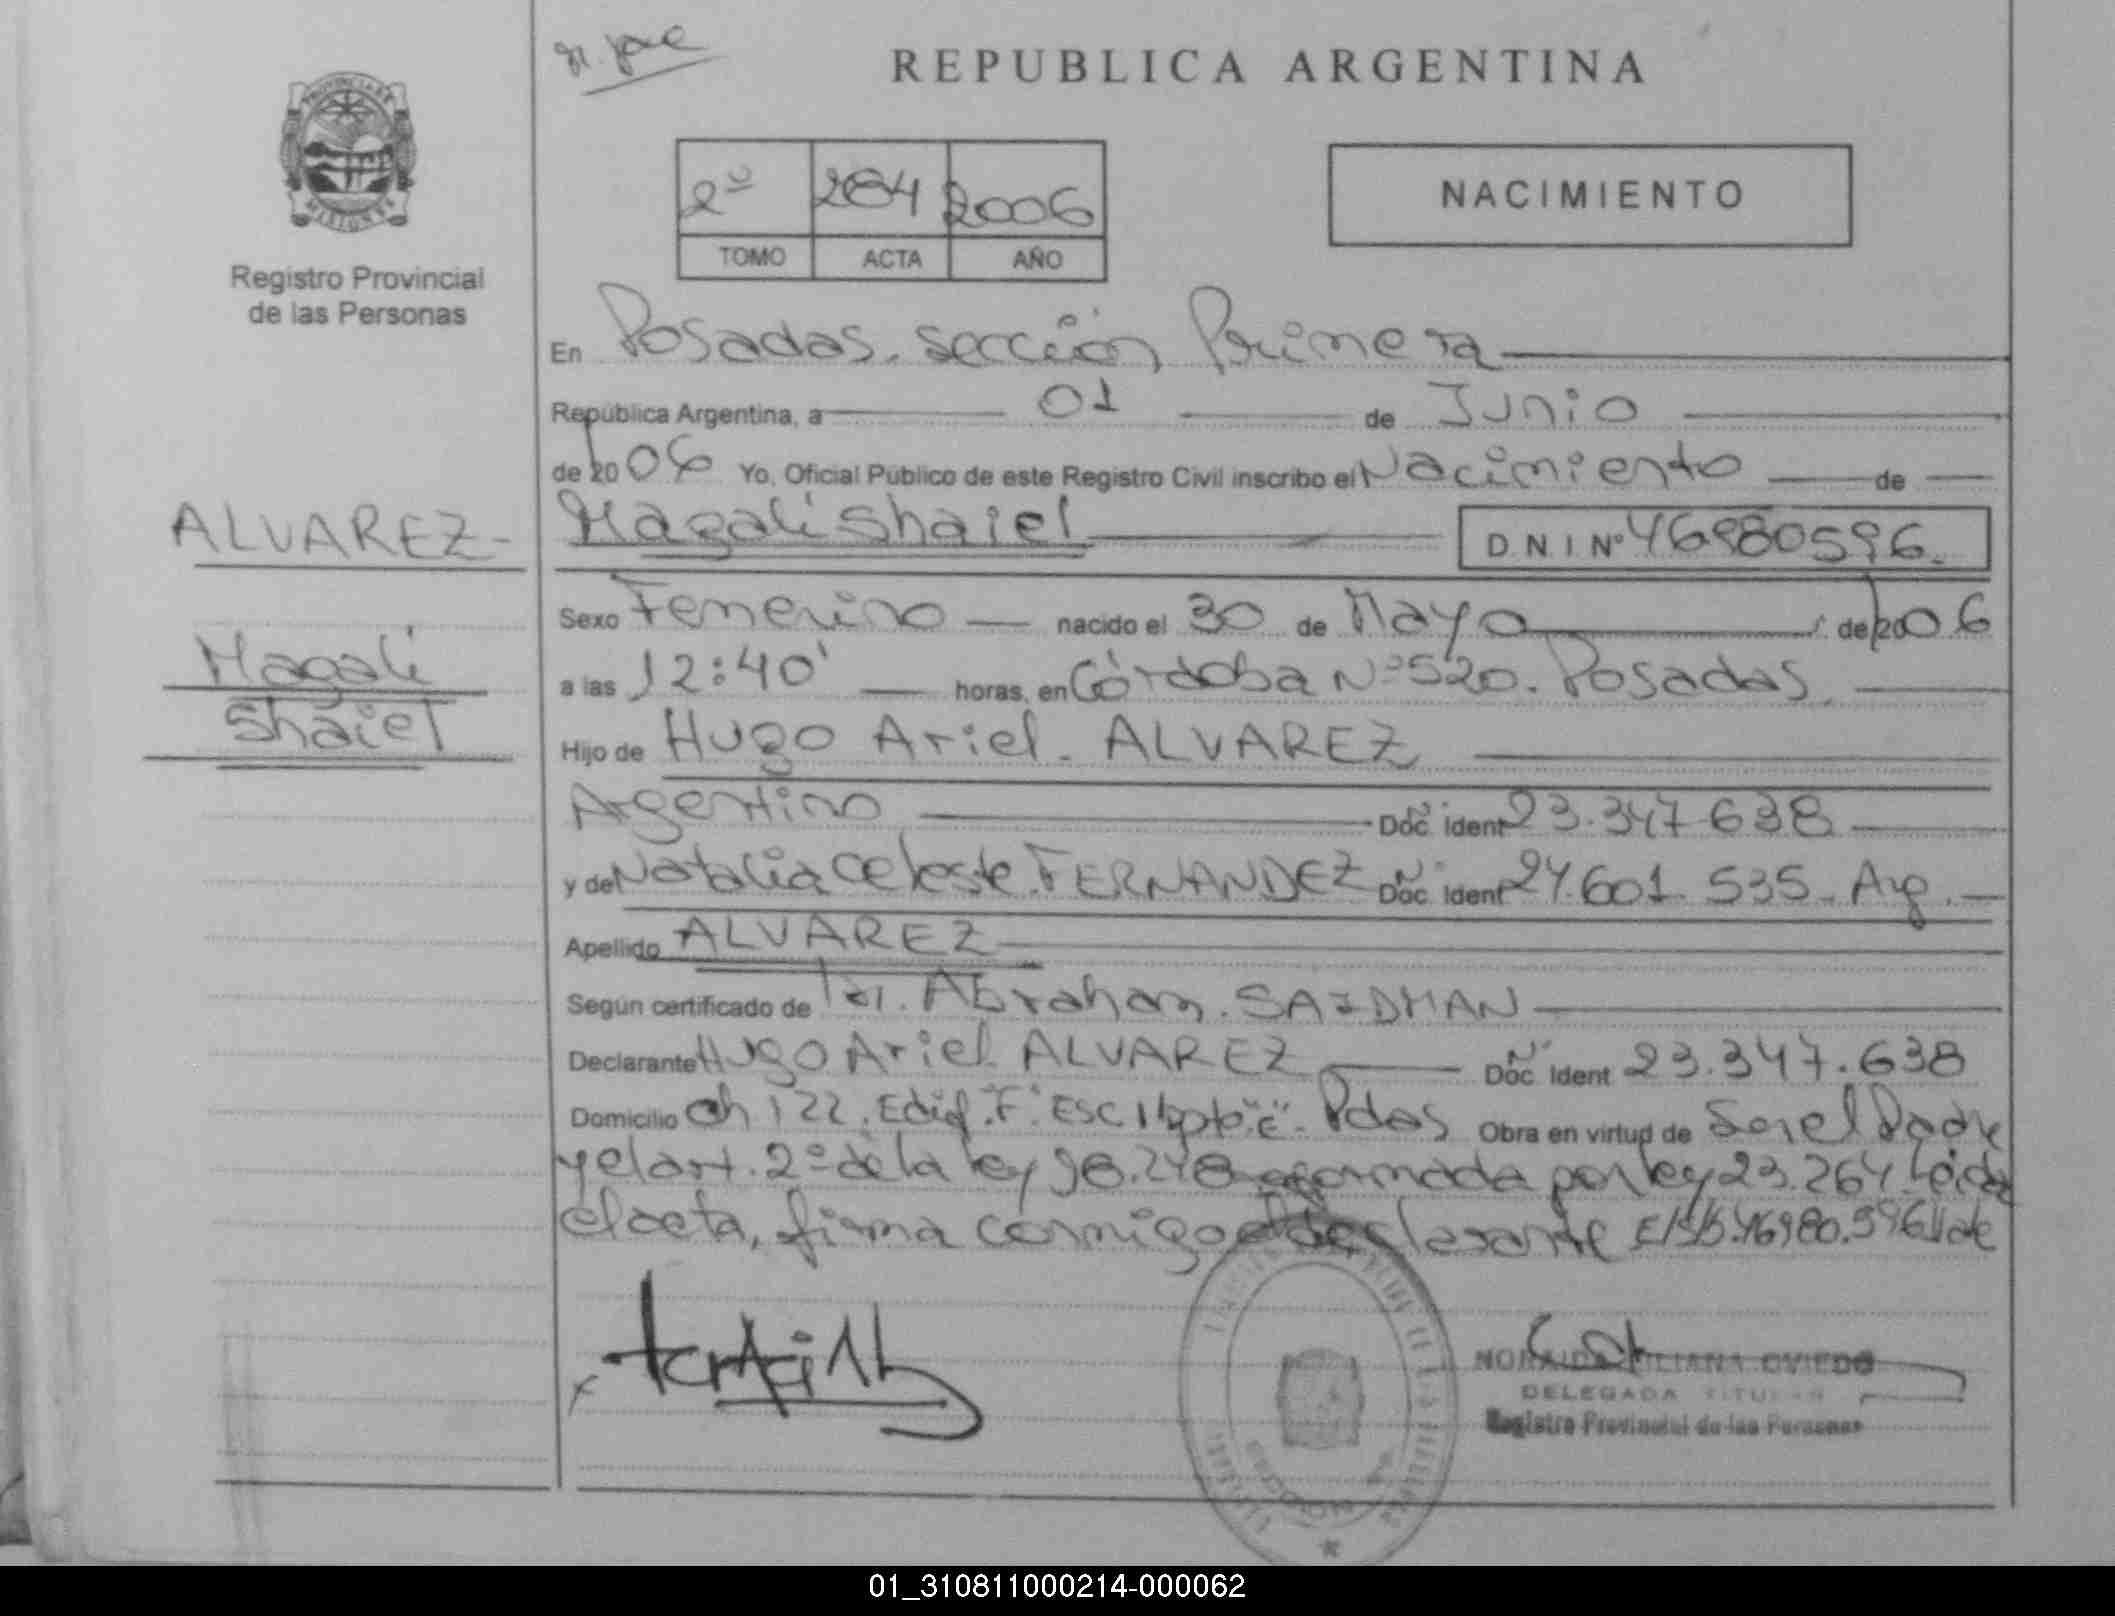 REPUBLICA ARGENTINA
2º 284 2006
TOMO ACTA AÑO
NACIMIENTO
PROVINCIA DE
MISIONES
Registro Provincial
de las Personas
En Posadas. sección Primera
República Argentina, a 01 de Junio
de 2006 Yo, Oficial Público de este Registro Civil inscribo el Nacimiento de
ALVAREZ-
Magali
Shaiel
Magali Shaiel D N I Nº 46980596.
Sexo Femenino nacido el 30 de Mayo de 2006
a las 12:40' horas, en Córdoba Nº 520. Posadas.
Hijo de Hugo Ariel. ALVAREZ
Argentino Doc. ident Nº 23.347.638
y de Natalia Celeste FERNANDEZ Doc. ident Nº 24.601.535. Arg.
Apellido ALVAREZ
Según certificado de Dr. Abraham. SAIDMAN
Declarante Hugo Ariel ALVAREZ Doc. Ident Nº 23.347.638
Domicilio Ch 122. Edif. "F" Esc 1 dpto "c". Pdas Obra en virtud de Ser el Padre
y el art. 2º de la ley 18.248 reformada por ley 23.264. Leída
el acta, firma conmigo el declarante E/S/B. 46980.596 Vale
NORAIDA LILIANA OVIEDO
DELEGADA TITULAR
Registro Provincial de las Personas
01_310811000214-000062